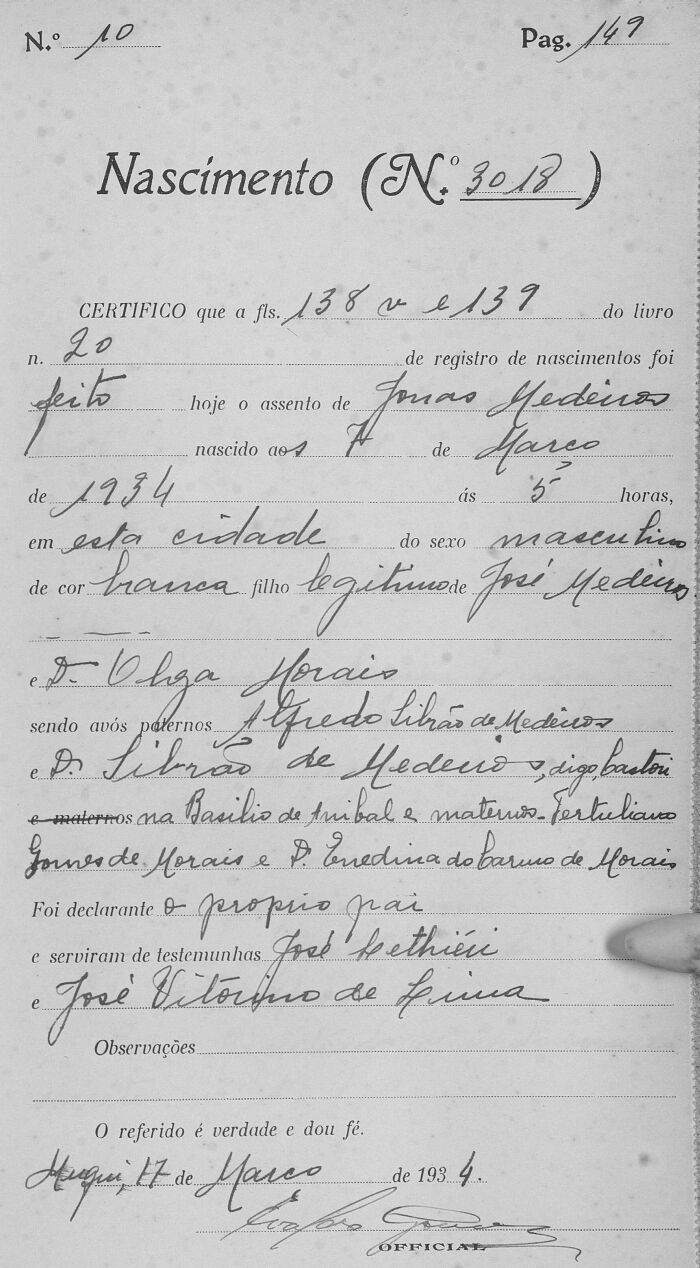 N.º 10 Pag. 149
Nascimento (N.º 3018)
CERTIFICO que a fls. 138 v e 139 do livro
n. 20 de registro de nascimentos foi
feito hoje o assento de Jonas Medeiros
nascido aos 7 de Março
de 1934 ás 5 horas,
em esta cidade do sexo masculino
de cor branca filho legitimo de José Medeiros
e D. Olga Morais
sendo avós paternos Alfredo Librão de Medeiros
e D. Librão de Medeiros, digo, Castori
e maternos na Basilio de Anibal e maternos - Tertuliano
Gomes de Morais e D. Enedina do Carmo de Morais
Foi declarante o proprio pai
e serviram de testemunhas José Lethiéri
e José Vitorino de Lima
Observações
O referido é verdade e dou fé.
Muqui, 17 de Março de 1934.
OFFICIAL